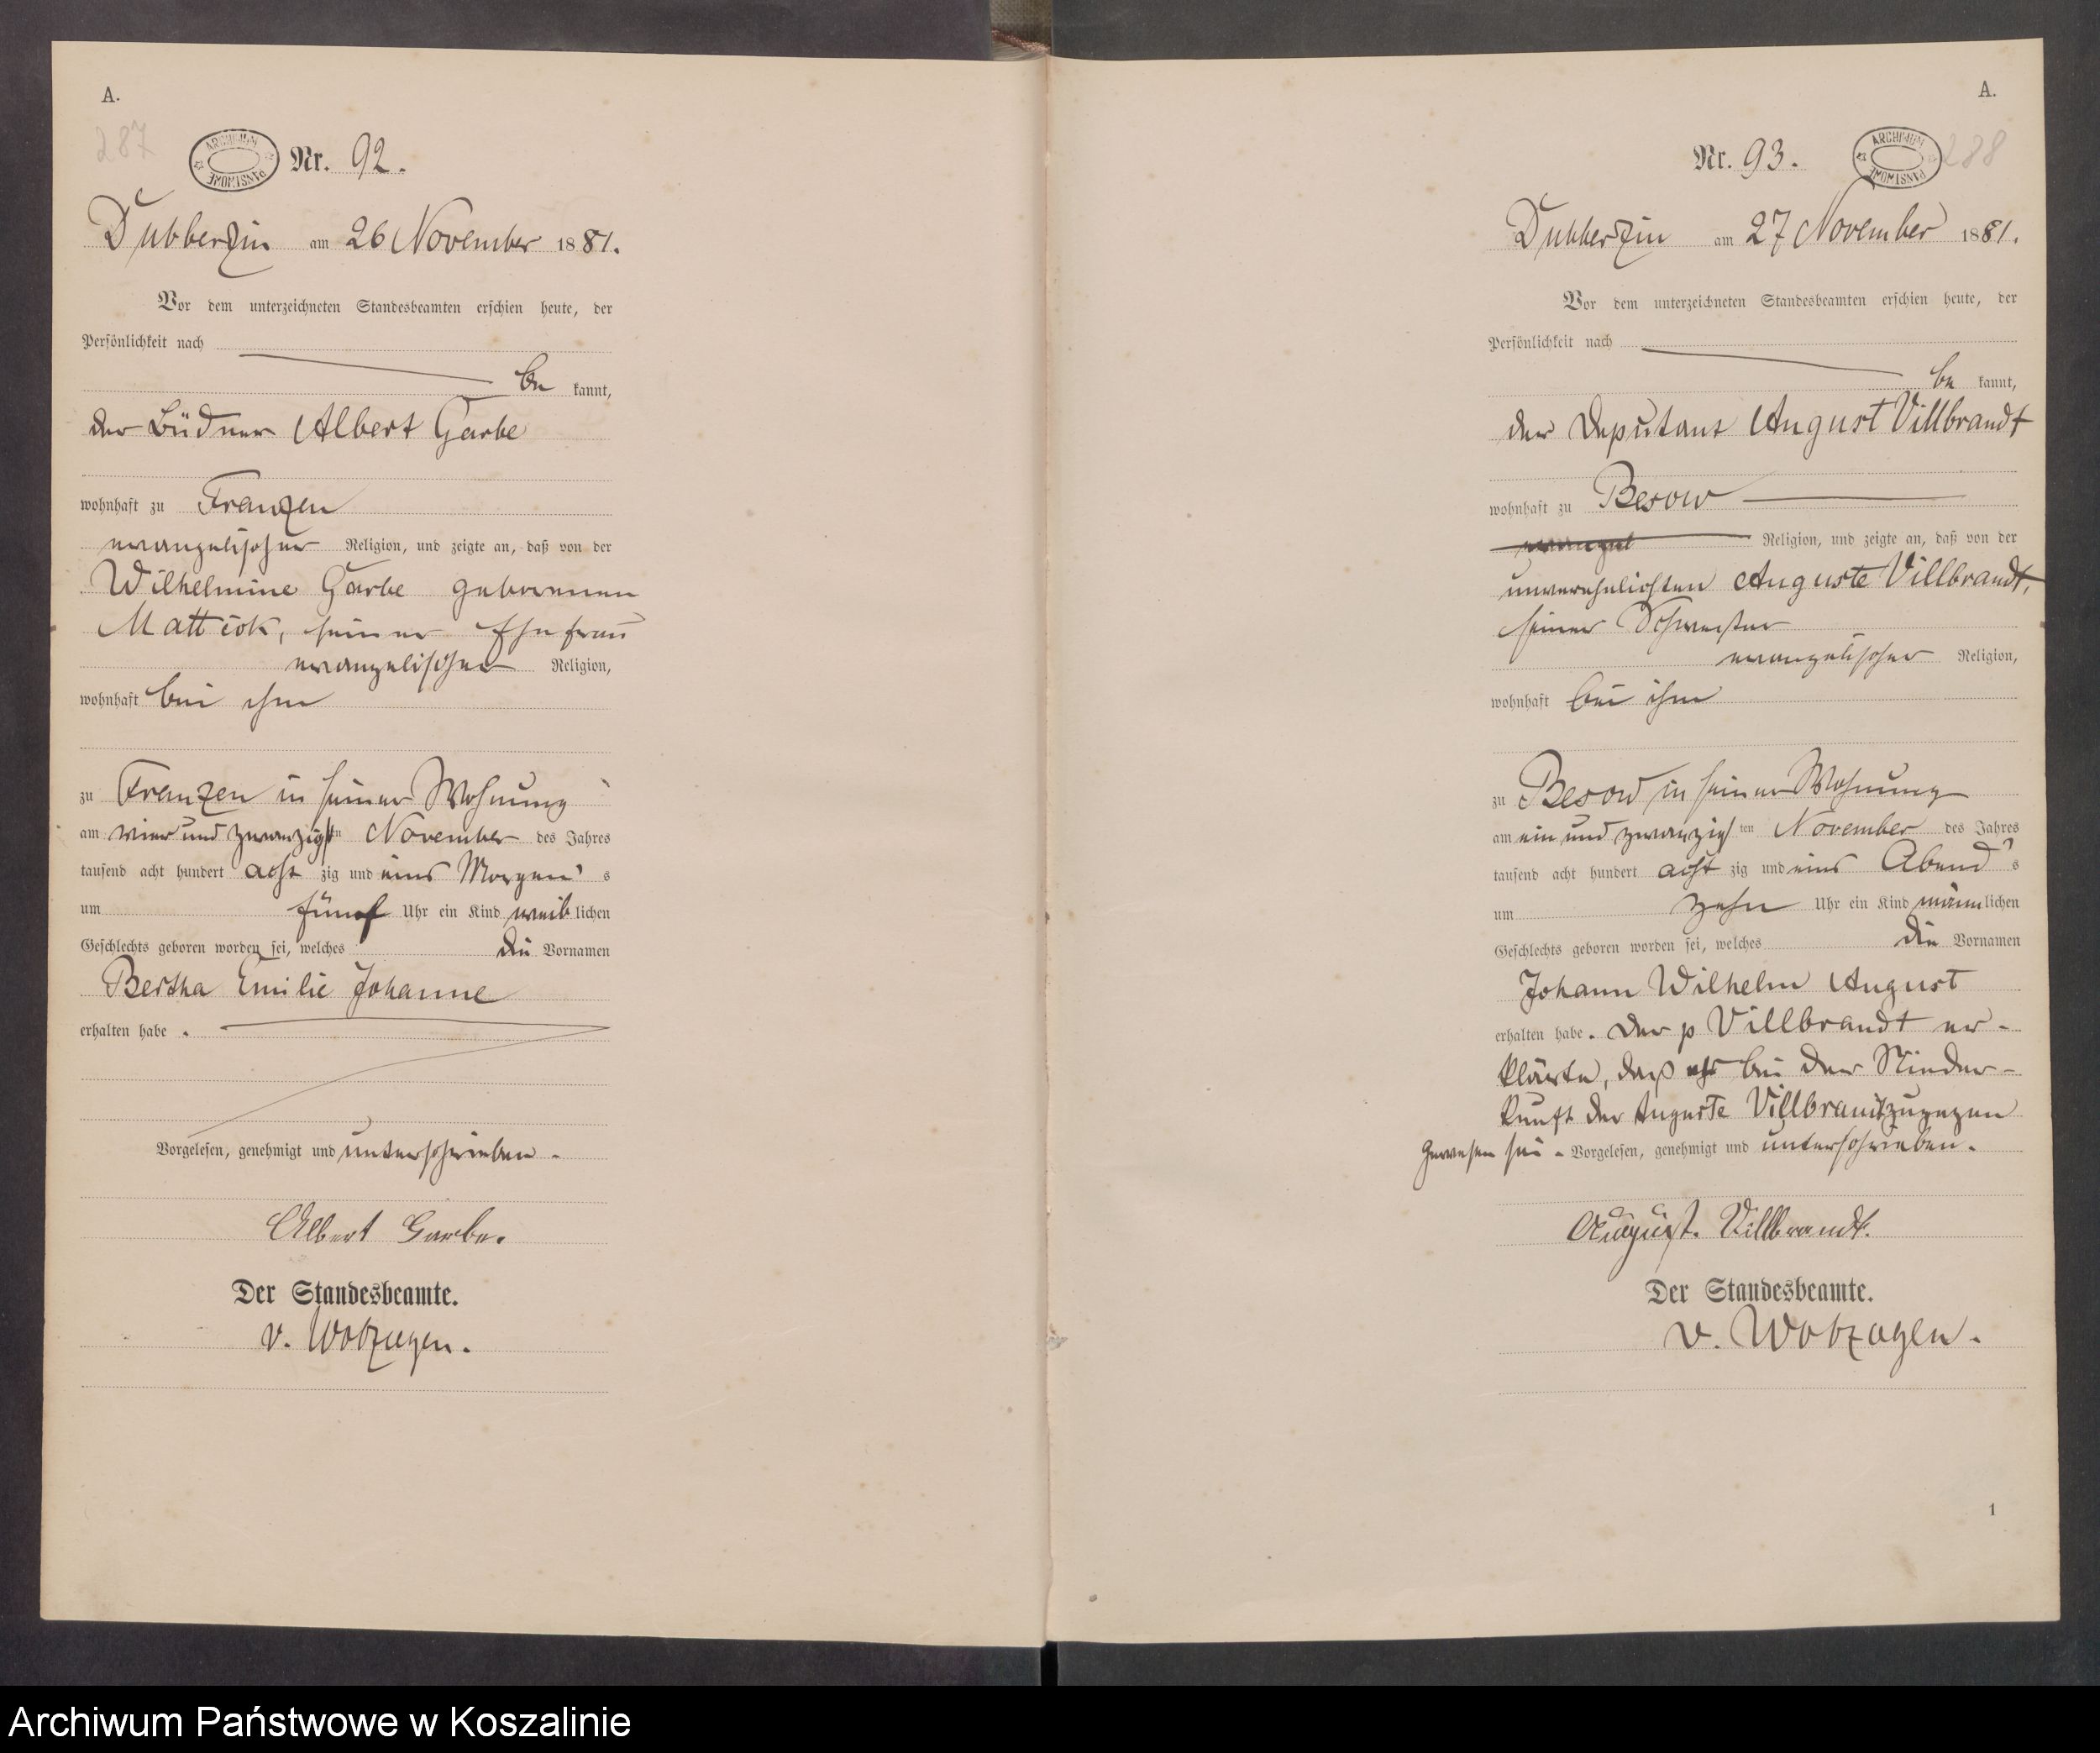 A.
287
ARCHIWUM PAŃSTWOWE
Nr. 92.
Dubberzin am 26 November 1881.
Vor dem unterzeichneten Standesbeamten erschien heute, der
Persönlichkeit nach
be kannt,
der Büdner Albert Garbe
wohnhaft zu Franzen
evangelischer Religion, und zeigte an, daß von der
Wilhelmine Garbe geborenen
Mattick, seiner Ehefrau
evangelischer Religion,
wohnhaft bei ihm
zu Franzen in seiner Wohnung
am vier und zwanzigsten November des Jahres
tausend acht hundert acht zig und eins Morgens
um fünf Uhr ein Kind weiblichen
Geschlechts geboren worden sei, welches die Vornamen
Bertha Emilie Johanne
erhalten habe.
Vorgelesen, genehmigt und unterschrieben.
Albert Garbe.
Der Standesbeamte.
v. Wolzogen.
A.
Nr. 93.
ARCHIWUM PAŃSTWOWE
288
Dubberzin am 27 November 1881.
Vor dem unterzeichneten Standesbeamten erschien heute, der
Persönlichkeit nach
be kannt,
der Deputant August Villbrandt
wohnhaft zu Besow
evangel Religion, und zeigte an, daß von der
unverehelichten Auguste Villbrandt,
seiner Schwester
evangelischer Religion,
wohnhaft bei ihm
zu Besow in seiner Wohnung
am ein und zwanzigsten November des Jahres
tausend acht hundert acht zig und eins Abends
um zehn Uhr ein Kind männlichen
Geschlechts geboren worden sei, welches die Vornamen
Johann Wilhelm August
erhalten habe. Der p Villbrandt er-
klärte, daß er bei der Nieder-
kunft der Auguste Villbrandt zugegen
gewesen sei. Vorgelesen, genehmigt und unterschrieben.
August. Villbrandt.
Der Standesbeamte.
v. Wolzogen.
1
Archiwum Państwowe w Koszalinie